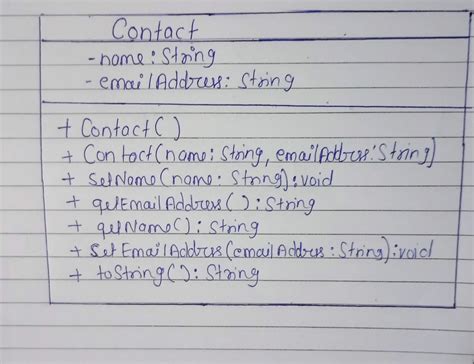 Contact
- name : String
- emailAddress : String
+ Contact()
+ Contact(name: String, emailAddress: String)
+ SetName(name: String): void
+ getEmailAddress(): String
+ getName(): String
+ SetEmailAddress(emailAddress: String): void
+ toString(): String